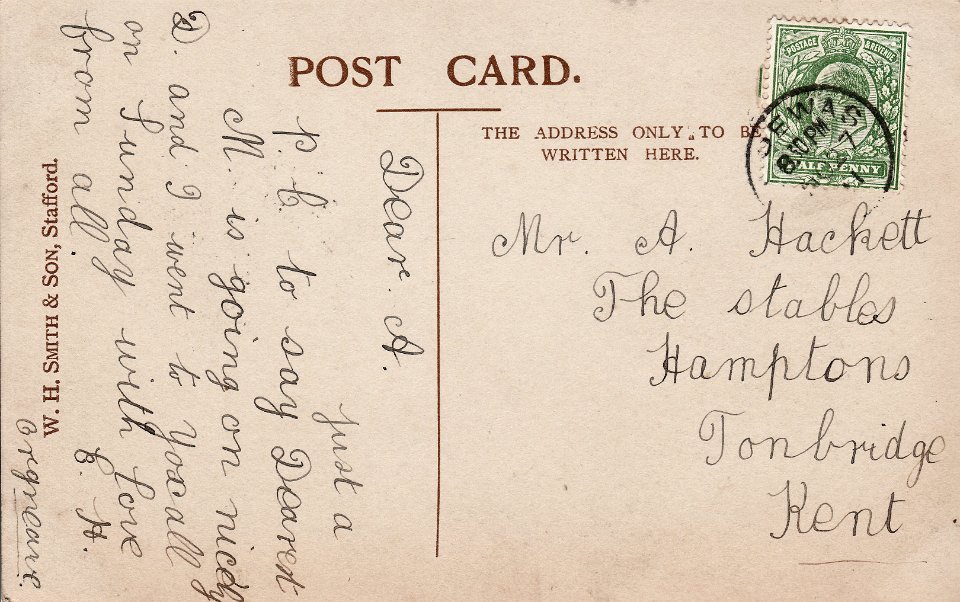 POST CARD.
THE ADDRESS ONLY TO BE
WRITTEN HERE.
POSTAGE & REVENUE
HALFPENNY
REWAS
8.10PM
Mr. A. Hackett
The stables
Hamptons
Tonbridge
Kent
Dear. A.
just a
P. C. to say Dearest
M. is going on nicely
D. and I went to Yoxall
on Sunday with love
from all.
E. H.
Orgreave.
W. H. SMITH & SON, Stafford.